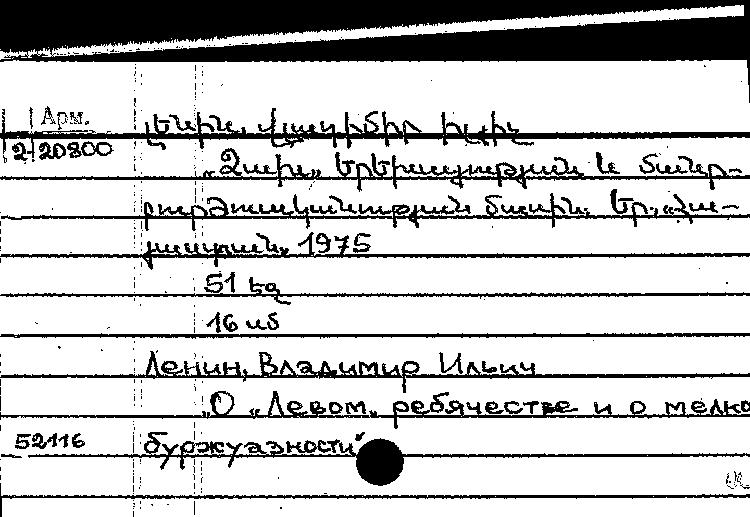 Арм.
Լենին, Վլադիմիր Իլյիչ
2-20800
„Ձախ” երեխայության և մանր-
բուրժուականության մասին. Եր., „Հա-
յաստան”, 1975
51 էջ
16 սմ
Ленин, Владимир Ильич
„О „Левом„ ребячестве и о мелко
52116 буржуазности”